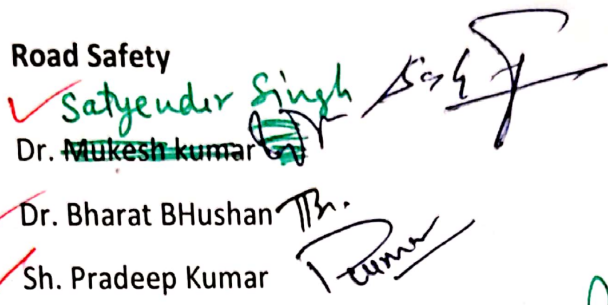 Road Safety
Satyender Singh
Dr. Mukesh kumar
Dr. Bharat BHushan
Sh. Pradeep Kumar